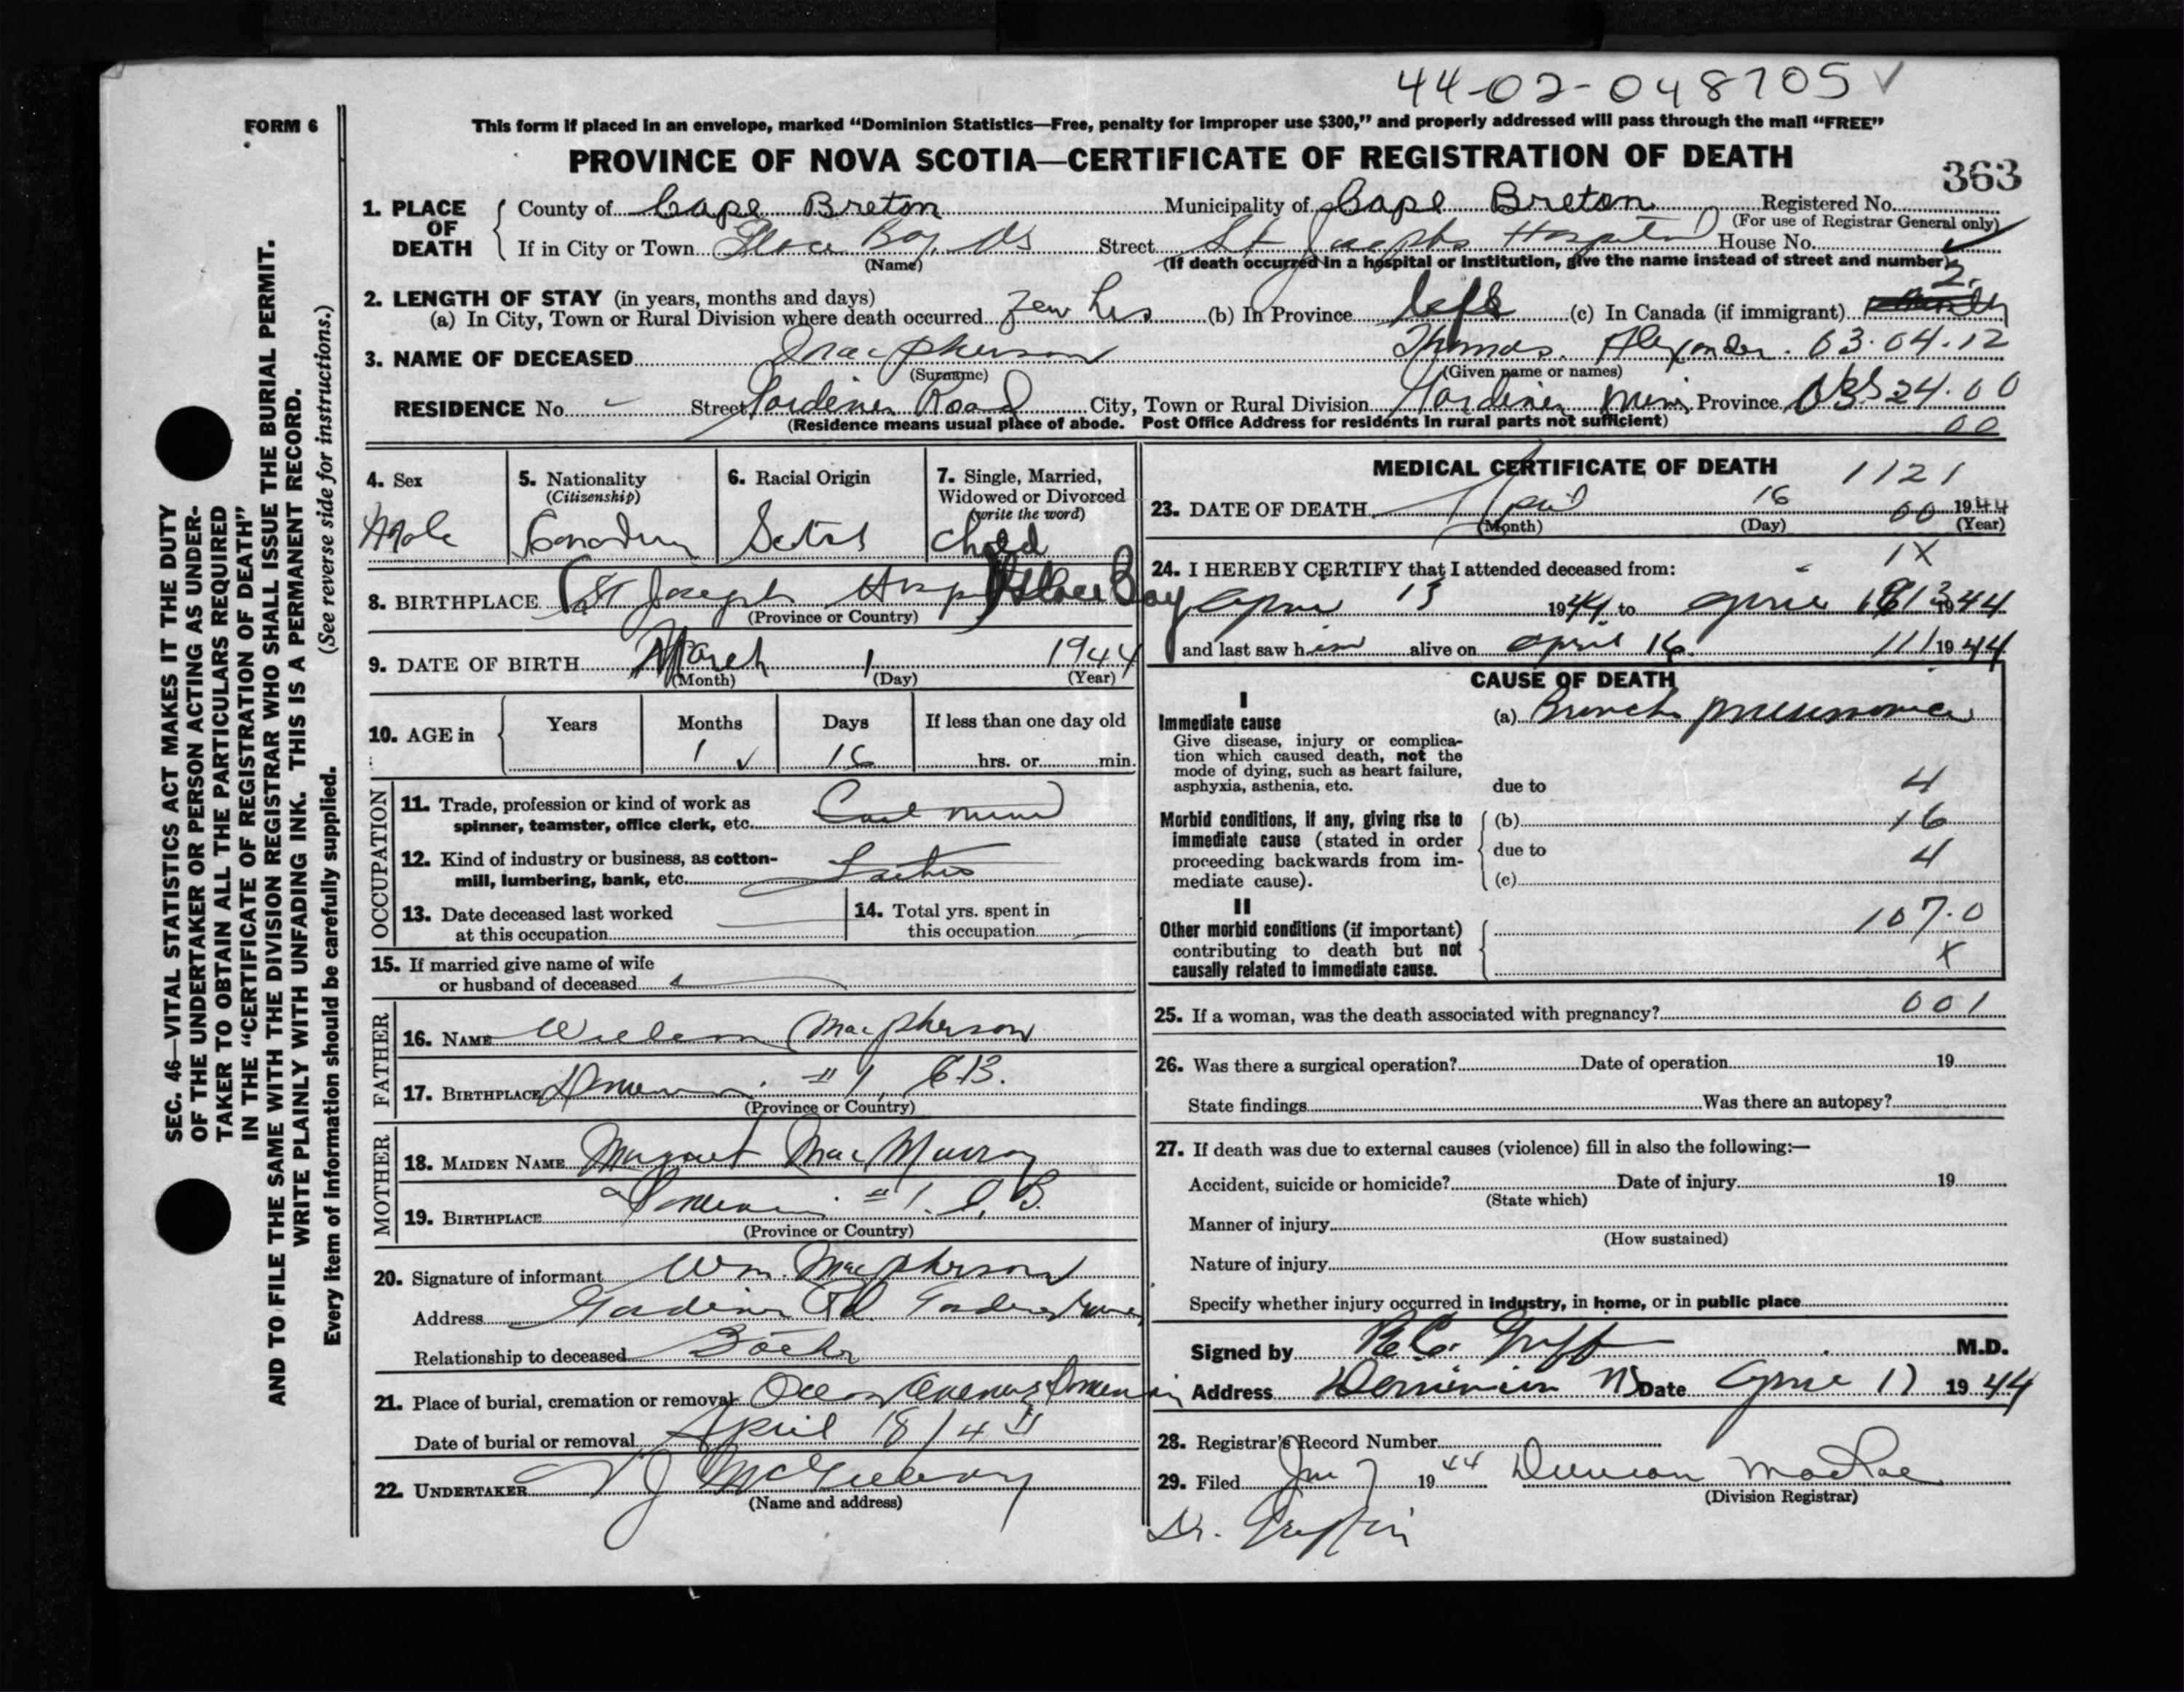 44-02-048705 ✓
FORM 6
This form if placed in an envelope, marked “Dominion Statistics—Free, penalty for improper use $300,” and properly addressed will pass through the mail “FREE”
PROVINCE OF NOVA SCOTIA—CERTIFICATE OF REGISTRATION OF DEATH
363
SEC. 46—VITAL STATISTICS ACT MAKES IT THE DUTY
OF THE UNDERTAKER OR PERSON ACTING AS UNDER-
TAKER TO OBTAIN ALL THE PARTICULARS REQUIRED
IN THE “CERTIFICATE OF REGISTRATION OF DEATH”
AND TO FILE THE SAME WITH THE DIVISION REGISTRAR WHO SHALL ISSUE THE BURIAL PERMIT.
WRITE PLAINLY WITH UNFADING INK. THIS IS A PERMANENT RECORD.
Every item of information should be carefully supplied. (See reverse side for instructions.)
1. PLACE OF DEATH
County of Cape Breton Municipality of Cape Breton Registered No.
(For use of Registrar General only)
If in City or Town Glace Bay, NS Street St Josephs Hospital House No.
(Name) (If death occurred in a hospital or institution, give the name instead of street and number)
2. LENGTH OF STAY (in years, months and days)
2.
(a) In City, Town or Rural Division where death occurred few hrs (b) In Province life (c) In Canada (if immigrant)
3. NAME OF DECEASED MacPherson Thomas. Alexander. 03.04.12
(Surname) (Given name or names)
RESIDENCE No. - Street Gardiner Road City, Town or Rural Division Gardiner Mines Province 24.00
(Residence means usual place of abode. Post Office Address for residents in rural parts not sufficient) 00
4. Sex
Male
5. Nationality
(Citizenship)
Canadian
6. Racial Origin
Scotch
7. Single, Married,
Widowed or Divorced
(write the word)
child
8. BIRTHPLACE St Joseph Hosp Glace Bay
(Province or Country)
9. DATE OF BIRTH March 1 1944
(Month) (Day) (Year)
10. AGE in
Years Months Days If less than one day old
1 ✓ 16 hrs. or min.
OCCUPATION
11. Trade, profession or kind of work as
spinner, teamster, office clerk, etc. Coal
12. Kind of industry or business, as cotton-
mill, lumbering, bank, etc.
13. Date deceased last worked
at this occupation
14. Total yrs. spent in
this occupation
15. If married give name of wife
or husband of deceased
FATHER
16. NAME William MacPherson
17. BIRTHPLACE Dominion #1, C.B.
(Province or Country)
MOTHER
18. MAIDEN NAME Margaret MacMurray
19. BIRTHPLACE Dominion #1. C.B.
(Province or Country)
20. Signature of informant Wm. MacPherson
Address Gardiner Rd. Gardiner Mines
Relationship to deceased
21. Place of burial, cremation or removal Dominion
Date of burial or removal April 18/44
22. UNDERTAKER
(Name and address)
MEDICAL CERTIFICATE OF DEATH 1121
23. DATE OF DEATH April 16 00 1944
(Month) (Day) (Year)
1X
24. I HEREBY CERTIFY that I attended deceased from:
April 13 1944 to April 1944
and last saw him alive on April 16 111 1944
CAUSE OF DEATH
I
Immediate cause (a) Broncho pneumonia
Give disease, injury or complica-
tion which caused death, not the
mode of dying, such as heart failure,
asphyxia, asthenia, etc. due to 4
Morbid conditions, if any, giving rise to
immediate cause (stated in order
proceeding backwards from im-
mediate cause).
(b) 16
due to 4
(c)
II
Other morbid conditions (if important)
contributing to death but not
causally related to immediate cause.
107.0
X
25. If a woman, was the death associated with pregnancy? 001
26. Was there a surgical operation? Date of operation 19
State findings Was there an autopsy?
27. If death was due to external causes (violence) fill in also the following:—
Accident, suicide or homicide? Date of injury 19
(State which)
Manner of injury
(How sustained)
Nature of injury
Specify whether injury occurred in industry, in home, or in public place
Signed by M.D.
Address Dominion NS Date April 17 1944
28. Registrar's Record Number
29. Filed 7 1944 Duncan MacRae
(Division Registrar)
Dr. Griffin